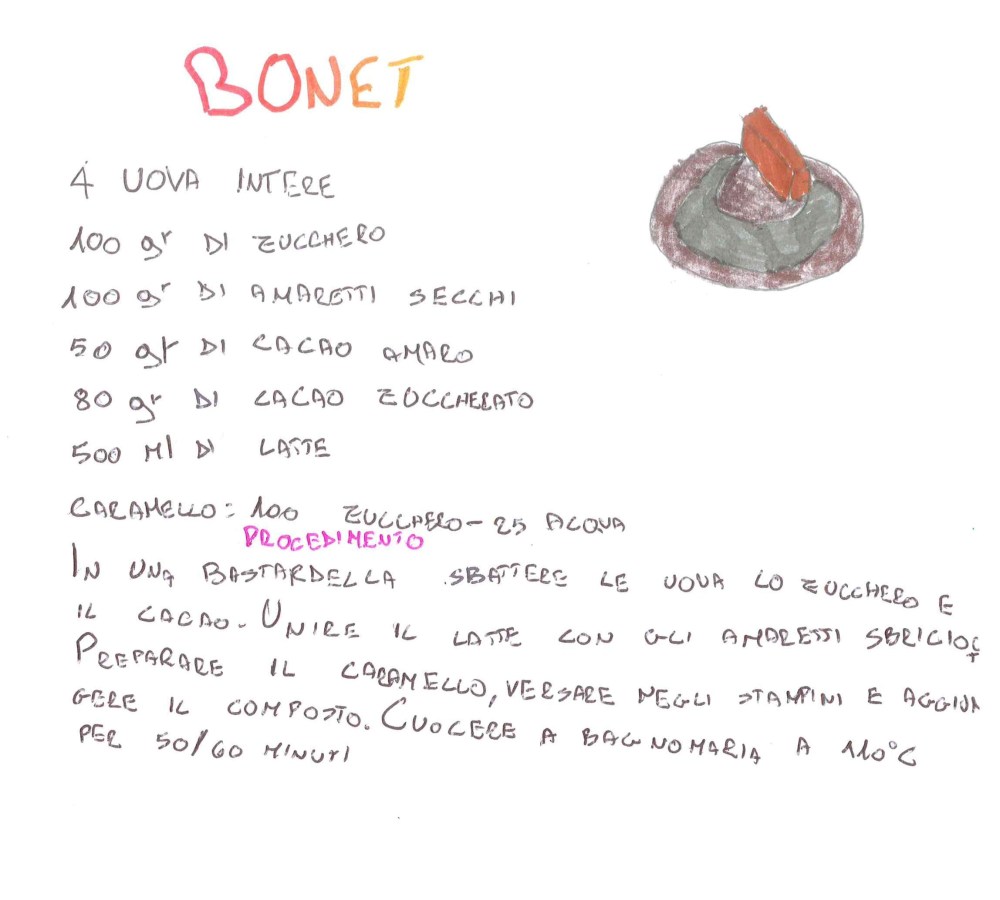 BONET
4 UOVA INTERE
100 gr DI ZUCCHERO
100 gr DI AMARETTI SECCHI
50 gr DI CACAO AMARO
80 gr DI CACAO ZUCCHERATO
500 Ml DI LATTE
CARAMELLO: 100 ZUCCHERO - 25 ACQUA
PROCEDIMENTO
IN UNA BASTARDELLA SBATTERE LE UOVA LO ZUCCHERO E
IL CACAO. UNIRE IL LATTE CON GLI AMARETTI
PREPARARE IL CARAMELLO, VERSARE NEGLI STAMPINI E AGGIUN
GERE IL COMPOSTO. CUOCERE A BAGNOMARIA A 110°C
PER 50/60 MINUTI